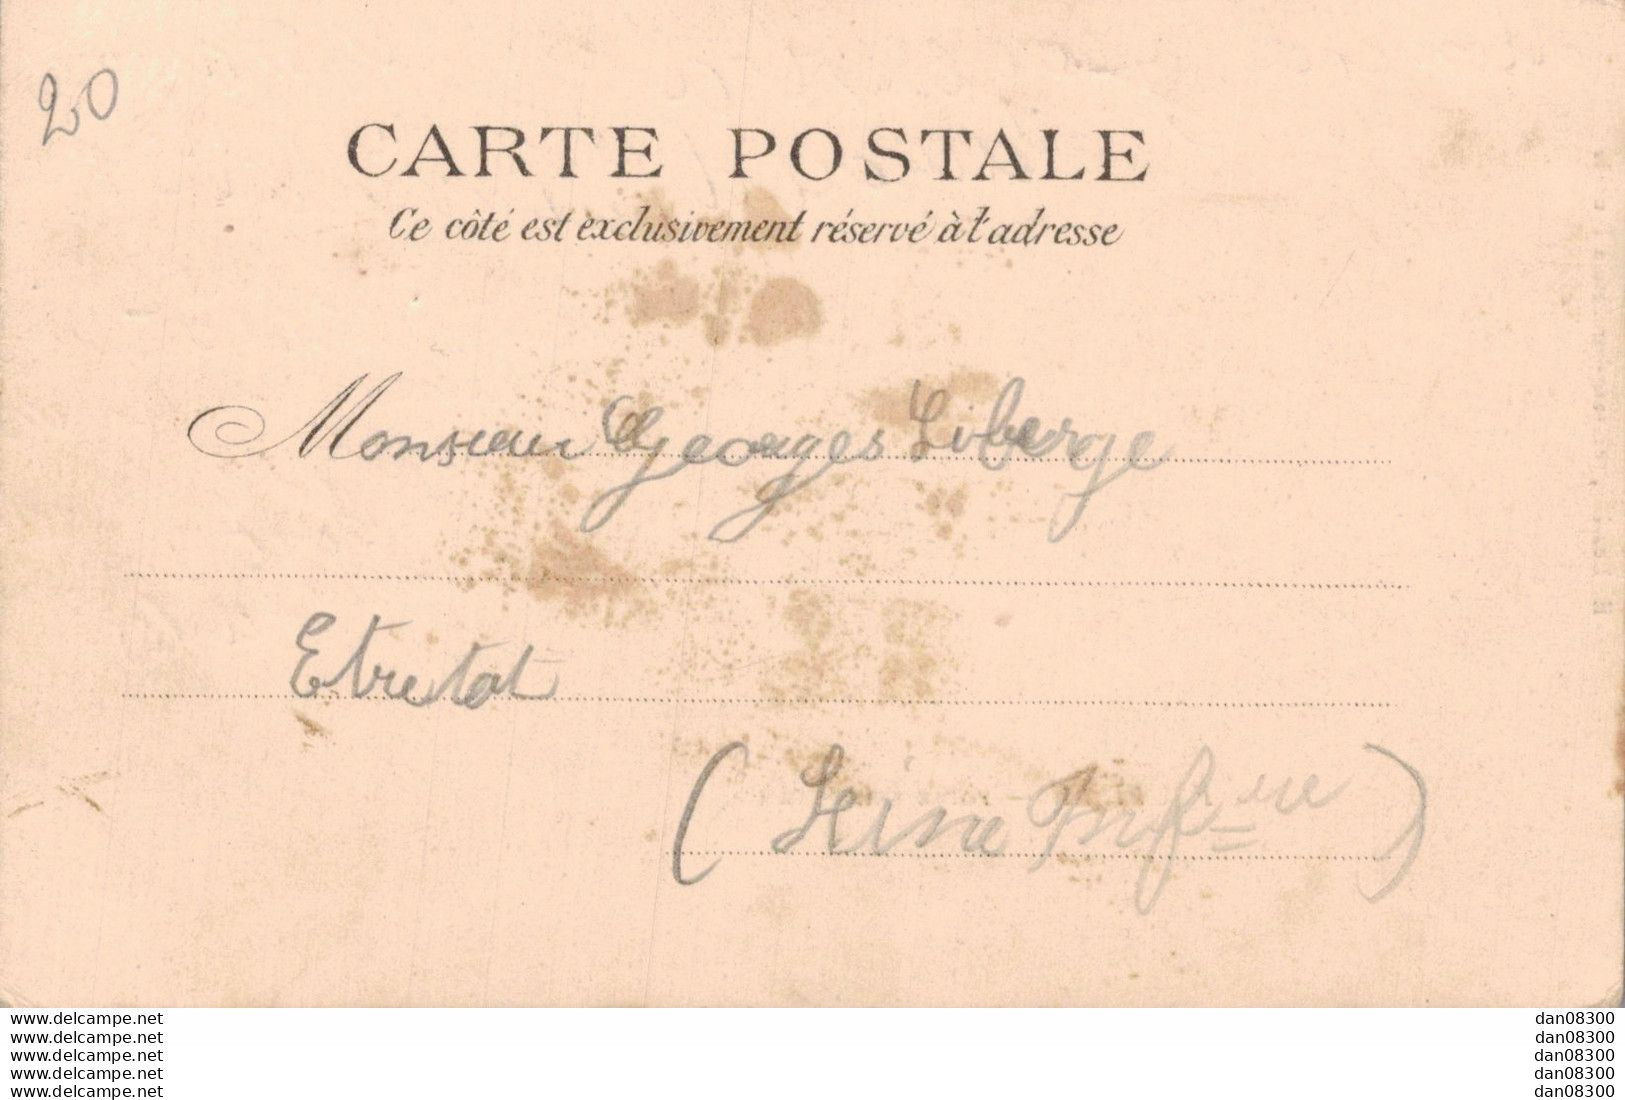 20
CARTE POSTALE
Ce côté est exclusivement réservé à l'adresse
Monsieur Georges Liberge
Etretat
(Seine Infre)
www.delcampe.net
www.delcampe.net
www.delcampe.net
www.delcampe.net
www.delcampe.net
dan08300
dan08300
dan08300
dan08300
dan08300